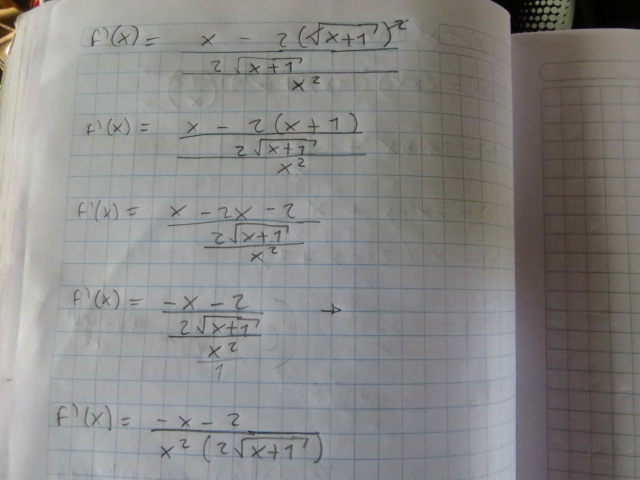 f'(x) = x - 2(√x+1)²
2√x+1
x²
f'(x) = x - 2(x+1)
2√x+1
x²
f'(x) = x - 2x - 2
2√x+1
x²
f'(x) = -x - 2 →
2√x+1
x²
1
f'(x) = -x - 2
x² (2√x+1)